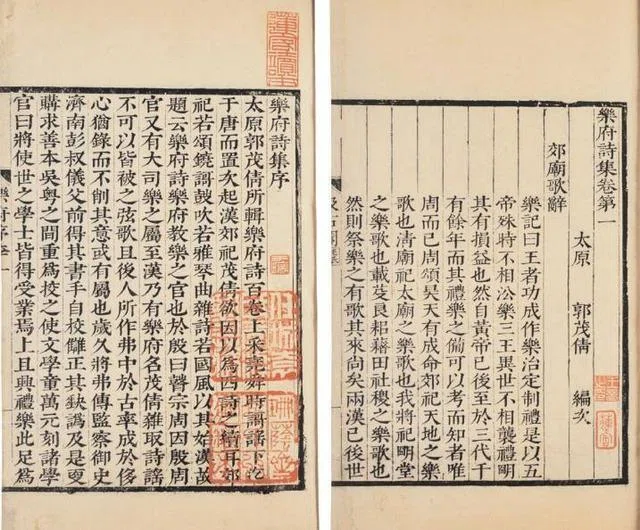 樂府詩集序
太原郭茂倩所輯樂府詩百卷上采堯舜時謌謡下迄
于唐而置次起漢郊祀茂倩欲因以為四詩之續耳郊
祀若頌鐃謌鼓吹若雅琴曲雜詩若國風以其始漢故
題云樂府詩樂府教樂之官也於殷曰瞽宗周因殷周
官又有大司樂之屬至漢乃有樂府名茂倩雜取詩謡
不可以皆被之弦歌且後人所作弗中於古率成於侈
心猶錄而不削其意或有屬也歲久將弗傳監察御史
濟南彭叔儀父前得其書手自校讎正其缺譌及是更
購求善本吳粤之間重為校之使文學童萬元刻諸學
官曰將使世之學士皆得受業焉上且興禮樂此足為
樂府序 一
樂府詩集卷第一
太原 郭茂倩 編次
郊廟歌辭
樂記曰王者功成作樂治定制禮是以五
帝殊時不相沿樂三王異世不相襲禮明
其有損益也然自黃帝已後至於三代千
有餘年而其禮樂之備可以考而知者唯
周而已周頌昊天有成命郊祀天地之樂
歌也清廟祀太廟之樂歌也我將祀明堂
之樂歌也載芟良耜藉田社稷之樂歌也
然則祭樂之有歌其來尚矣兩漢已後世